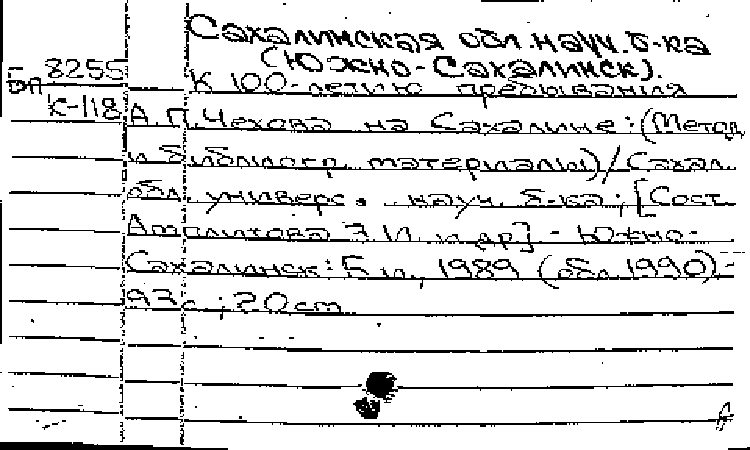 Сахалинская обл. науч. б-ка
(Южно-Сахалинск).
Бп 8255
К 100-летию пребывания
К-118
А. П. Чехова на Сахалине: (Метод.
и библиогр. материалы) / Сахал.
обл. универс. науч. б-ка; [Сост.
З. И. и др] - Южно-
Сахалинск: Б. и., 1989 (обл. 1990) -
93 с; 20 cm